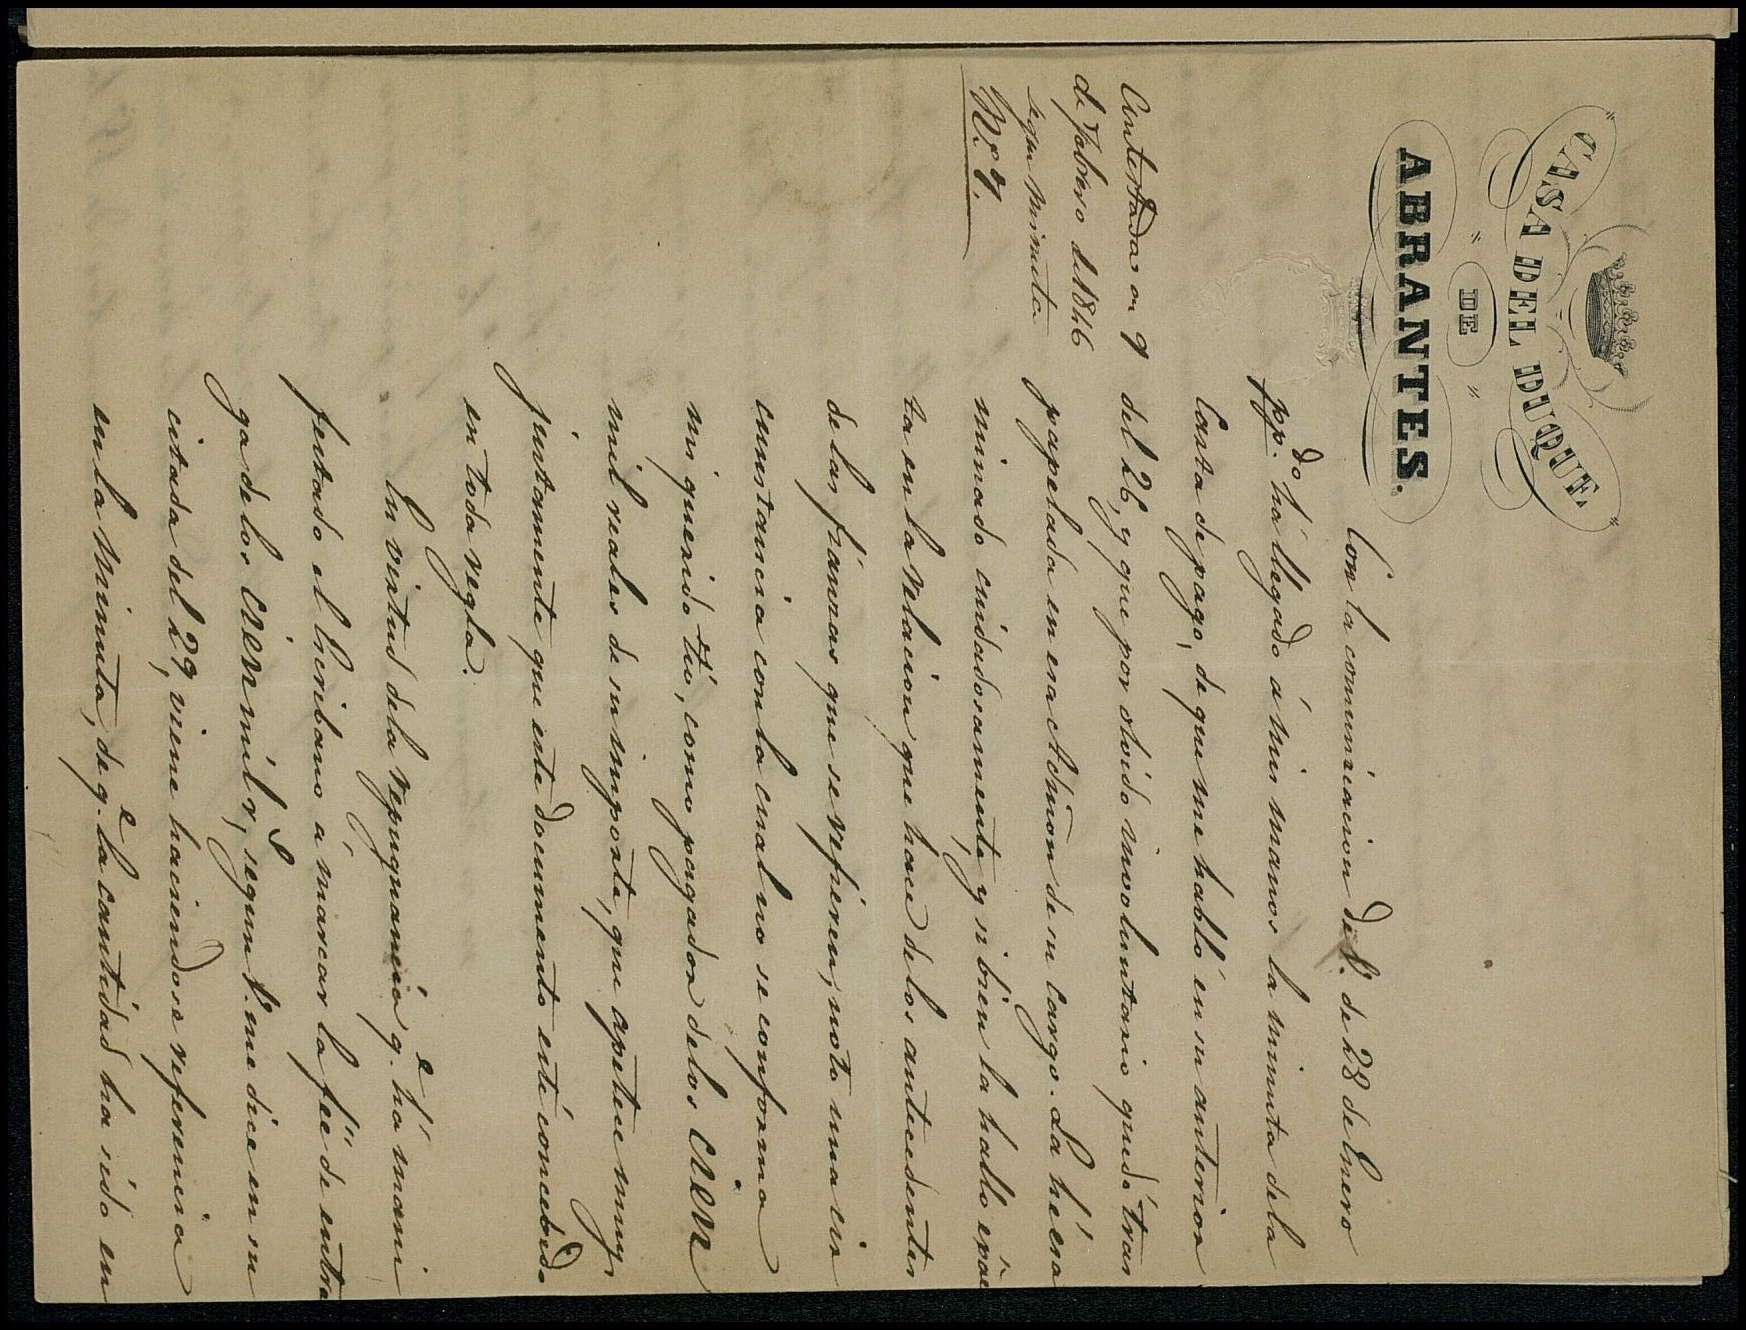 CASA DEL DUQUE
DE
ABRANTES.
Contestada en 9
de Febrero de 1846
segun minuta
N.º 9.
Con la comunicacion de V. de 28 de Enero
pp.do há llegado á mis manos la minuta dela
Carta de pago, de que me habló en su anterior
del 26, y que por olvido involuntario quedó tras
papelada en esa Admon de su cargo. La hé exa
minado cuidadosamente, y si bien la hallo exac
ta en la relacion que hace delos antecedentes
de las fianzas que se refieren, noto una cir
cunstancia con la cual no se conforma
mi querido tio, como pagador delos cien
mil reales de su importe, que apetece muy
justamente que este documento esté concebido
en toda regla.
En virtud dela repugnancia q.e há mani
festado el Escribano á marcar la fée de entre
ga delos cien mil r.s, segun V. me dice en su
citada del 29, viene haciendose referencia
en la minuta, de q.e la cantidad ha sido en